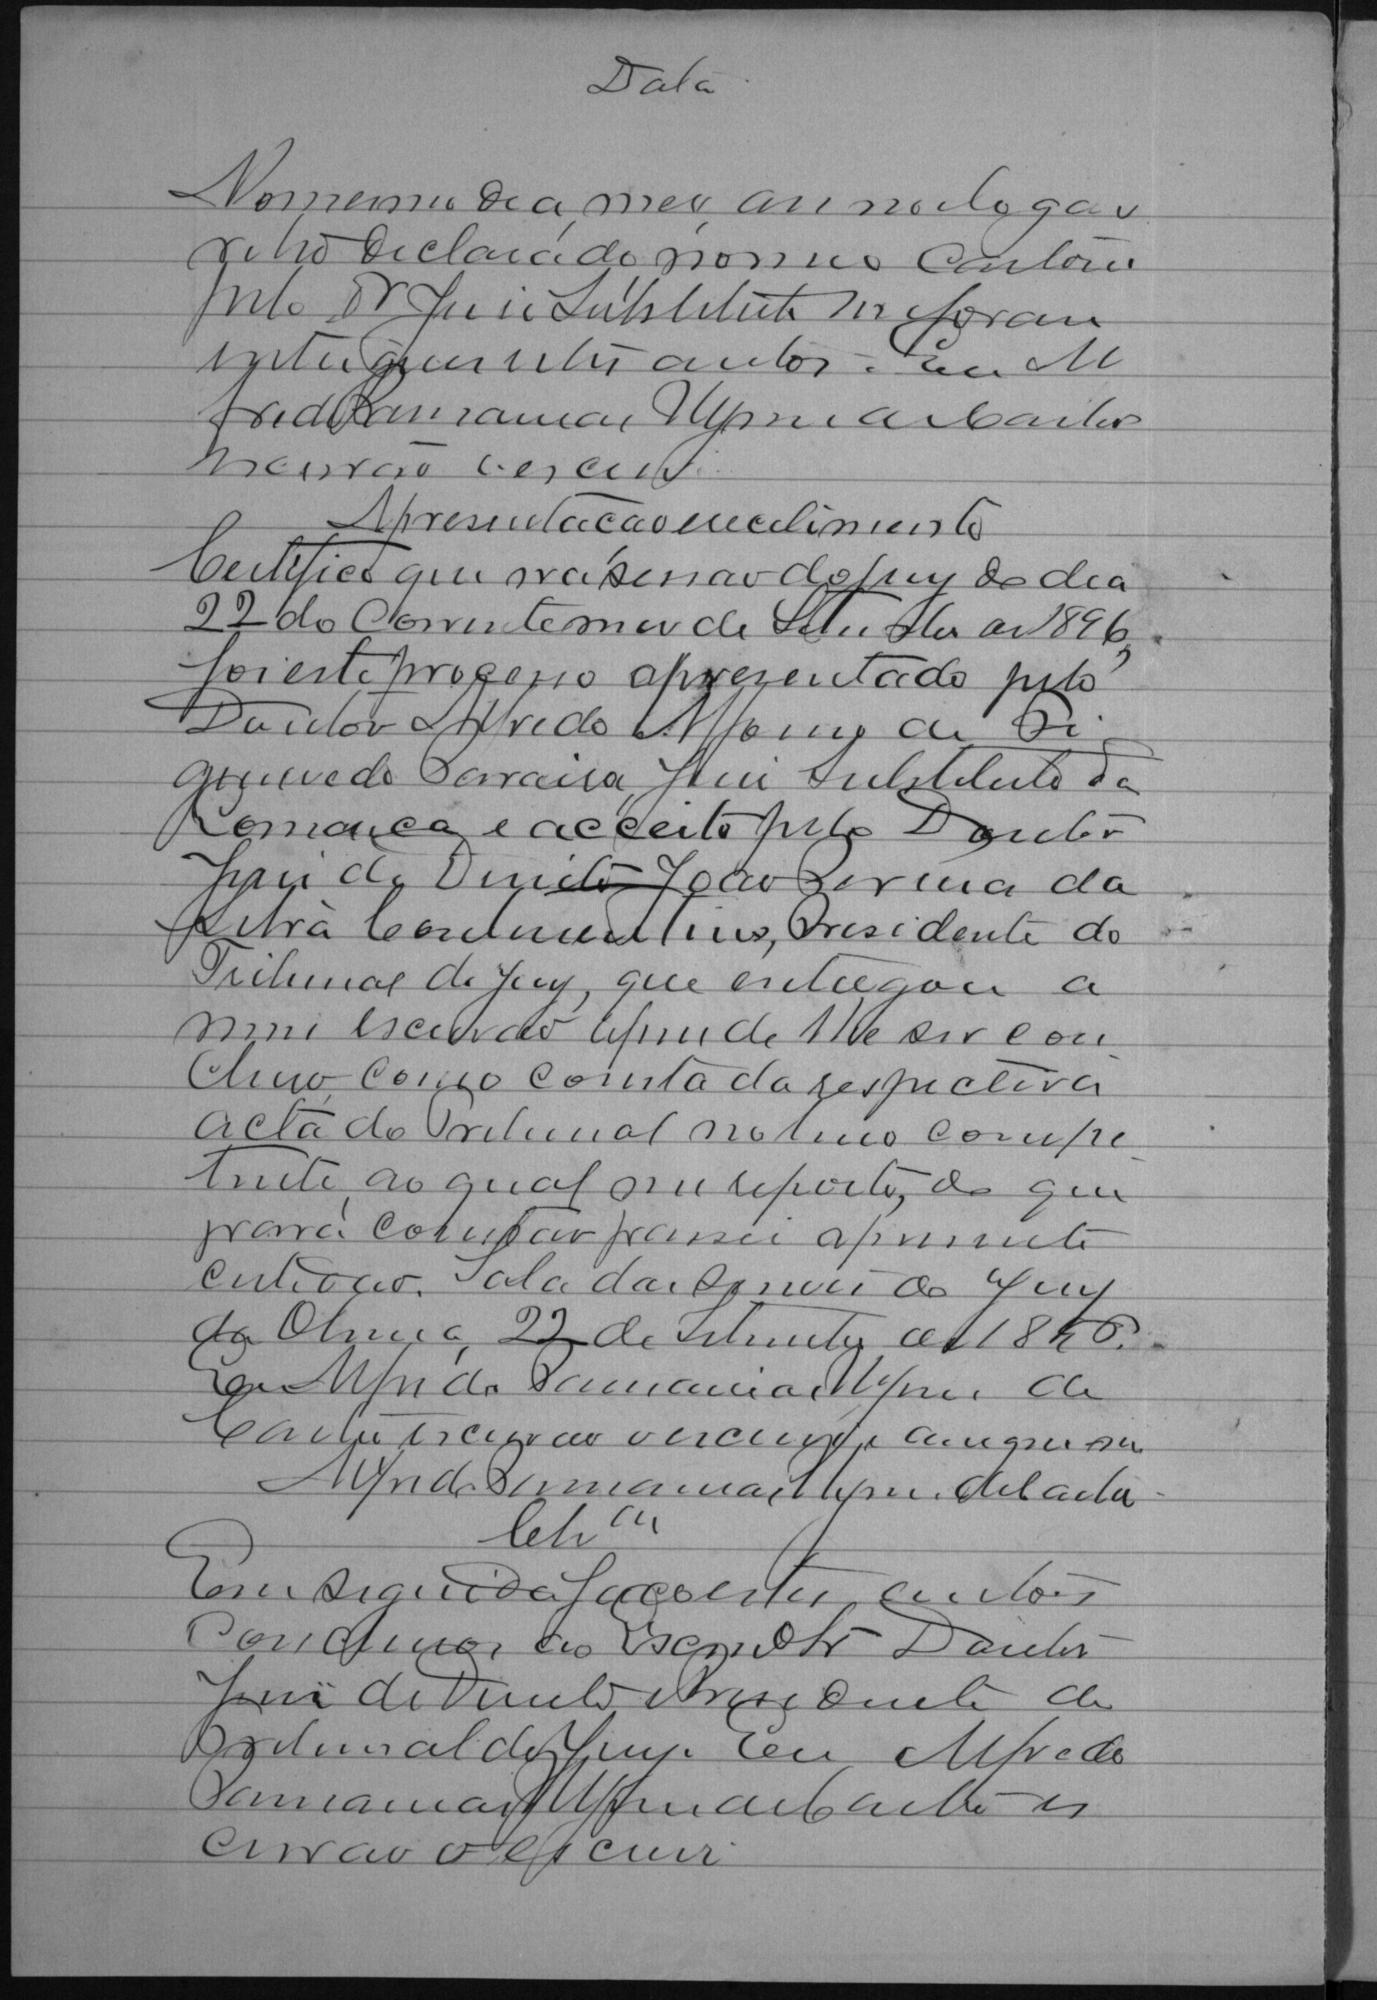 Data
No mesmo dia, mez, anno e logar
retro declarado no meu Cartorio
pelo Dr Juiz Substituto me foram
entregues estes autos. Eu Al
fredo de Castro
escrivão o escrevi.
Apresentacao e recebimento
Certifico que na sessao do Jury do dia
22 do Corrente mez de Setembro de 1896,
foi este processo apresentado pelo
Doutor Alfredo Affonso de
Juiz Substituto da
Comarca e acceito pelo Doutor
Juiz de Direito João Pereira da
Silva Presidente do
Tribunal do Jury, que entregou a
mim escrivão afim de lhe ser con
cluso, como consta da respectiva
acta do Tribunal no livro compe
tente, ao qual me reporto, do que
para constar passei a presente
certidão. Sala das Sessões do Jury
22 de Setembro de 1896.
Eu Alfredo de
Castro escrivão o escrevi e assigno
Alfredo de Castro
Clzm
Em seguida faço estes autos
Conclusos ao Doutor
Juiz de Direito e Presidente do
Tribunal do Jury. Eu Alfredo
de Castro es
crivão o escrevi